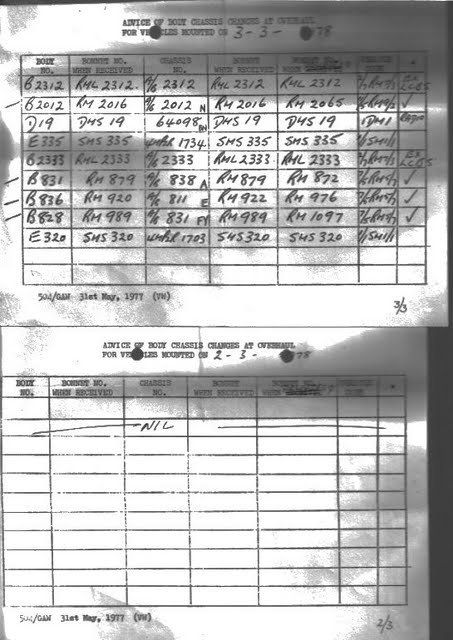 ADVICE OF BODY CHASSIS CHANGES AT OVERHAUL
FOR VEHICLES MOUNTED ON 3-3- 78
BODY NO. BONNET NO. WHEN RECEIVED CHASSIS NO. BONNET WHEN RECEIVED BONNET NO. WHEN CODE *
B2312 RML 2312 2312 RML 2312 RML 2312 EX LCBS
B2012 RM 2016 2012 N RM 2016 RM 2065 ✓
D19 DMS 19 64098 DMS 19 DMS 19 1DM1 RADIO
E335 SMS 335 1734 SMS 335 SMS 335
B2333 RML 2333 2333 RML 2333 RML 2333 EX LCBS
B831 RM 879 838 A RM 879 RM 872 ✓
B836 RM 920 811 E RM 922 RM 976 ✓
B828 RM 989 831 FY RM 989 RM 1097 ✓
E320 SMS 320 1703 SMS 320 SMS 320
504/GAW 31st May, 1977 (VW) 3/3
ADVICE OF BODY CHASSIS CHANGES AT OVERHAUL
FOR VEHICLES MOUNTED ON 2-3- 78
BODY NO. BONNET NO. WHEN RECEIVED CHASSIS NO. BONNET WHEN RECEIVED BONNET NO. WHEN CODE *
NIL
504/GAW 31st May, 1977 (VW) 2/3